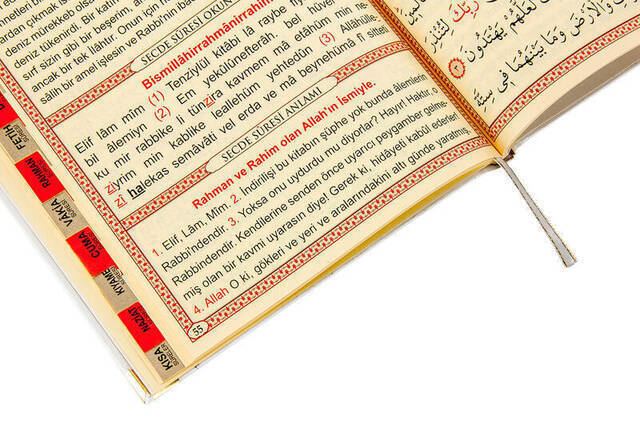 deniz tükenirdi. Bir katı
sırf sizin gibi bir beşerim, am
ancak bir tek ilâhtır. Onun için h
sâlih bir amel işlesin ve Rabbi'nin ibad
SECDE SÛRESİ OKUN
Bismillâhirrahmânirrahîm
Elif lâm mîm (1) Tenzîylül kitâbi lâ raybe
bil âlemiyn (2) Em yekûlûnefterâh. bel hüvel
ku mir rabbike li tünzira kavmem mâ etâhüm min ne
ziyrim min kablike leallehüm yehtedûn (3) Allâhülle-
zî halekas semâvâti vel erda ve mâ beynehümâ fî sitteti
SECDE SÛRESİ ANLAMI
Rahman ve Rahim olan Allah'ın İsmiyle.
1. Elif, Lâm, Mîm. 2. İndirilişi bu kitabın şüphe yok bunda âlemlerin
Rabbi'ndendir. 3. Yoksa onu uydurdu mu diyorlar? Hayır! Haktır, o
Rabbindendir. Kendilerine senden önce uyarıcı peygamber gelme-
miş olan bir kavmi uyarasın diye! Gerek ki, hidâyeti kabûl ederler!
4. Allah O ki, gökleri ve yeri ve aralarındakini altı günde yaratmış,
55
FETİH
RAHMAN
VAKIA
CUMA
KIYAME
NAZİAT
KISA
SURELER
لَعَلَّهُمْ يَهْتَدُونَ
وَالْاَرْضَ وَمَا بَيْنَهُمَا فِي سِتَّةِ